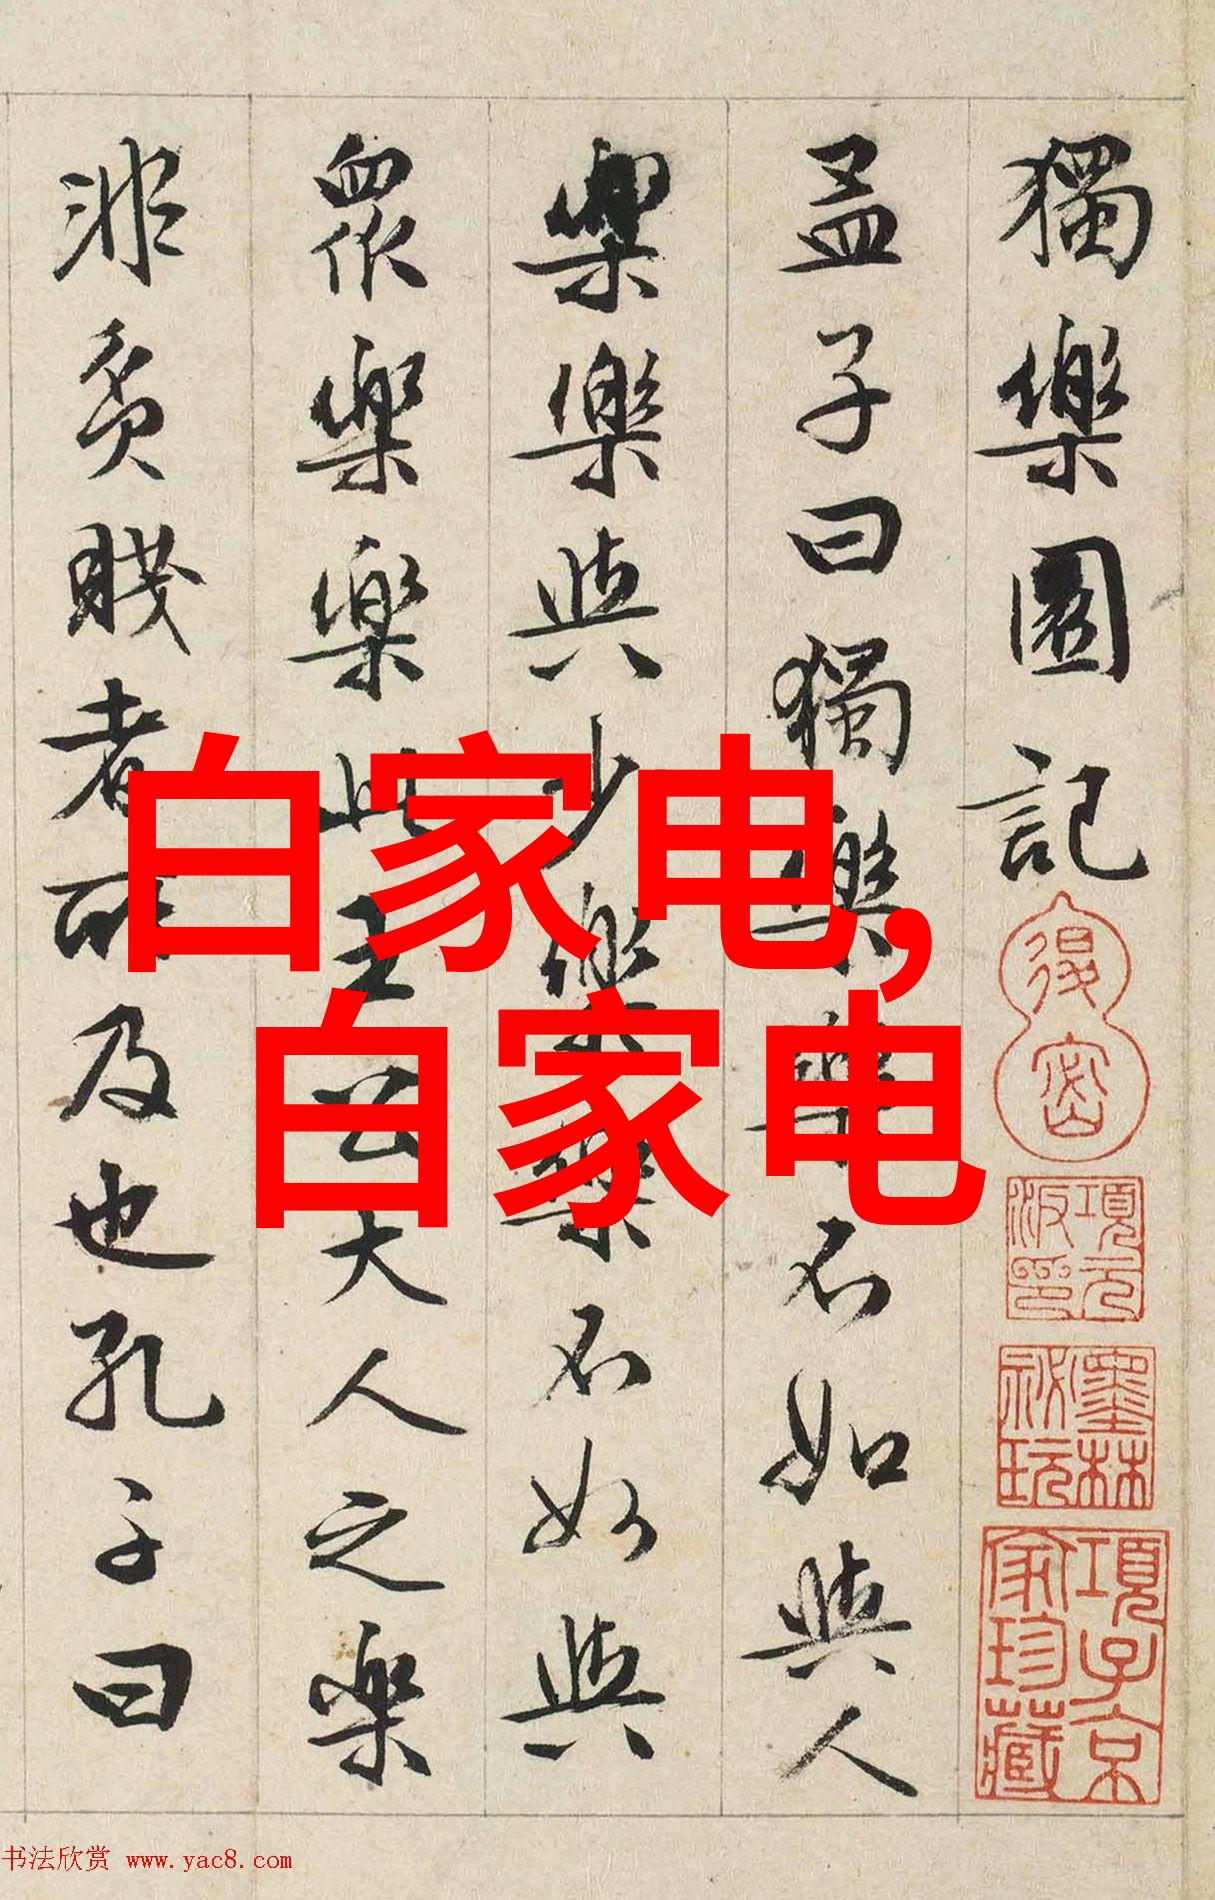 獨樂園記
孟子曰獨樂樂不如與人
樂樂與少樂樂不如與
眾樂樂此王公大人之樂
非貧賤者所及也孔子曰
白家电,
自家电
項元汴印
墨林秘玩
項子京家珍藏
书法欣赏 www.yac8.com